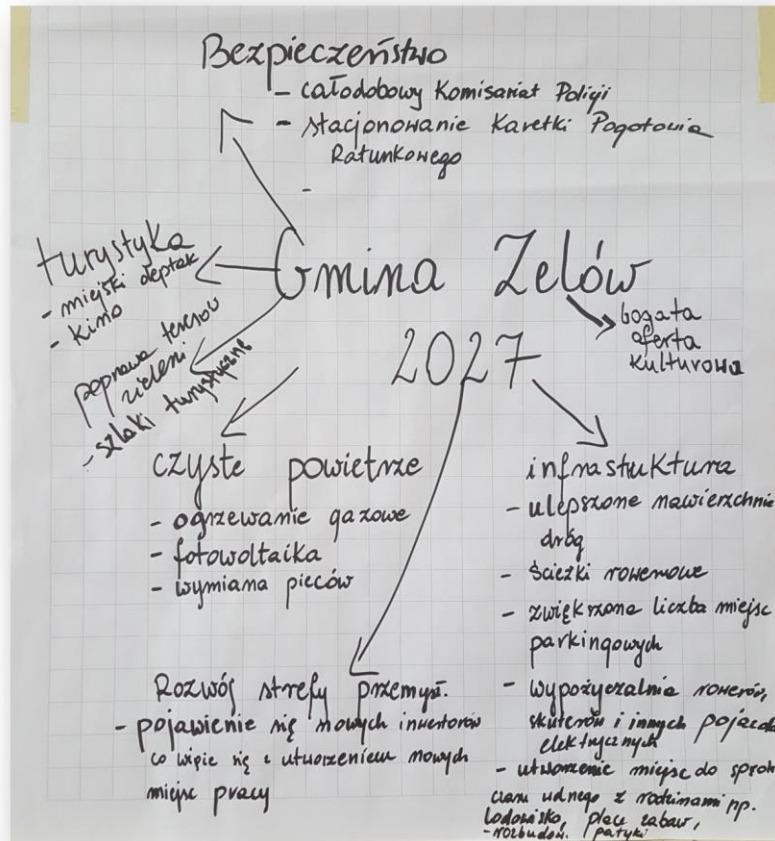 Bezpieczeństwo
- całodobowy Komisariat Policji
- stacjonowanie Karetki Pogotowia
Ratunkowego
-
turystyka
- miejski deptak
- kino
poprawa terenów
zieleni
- szlaki turystyczne
Gmina Zelów
2027
bogata
oferta
kulturowa
czyste powietrze
- ogrzewanie gazowe
- fotowoltaika
- wymiana pieców
infrastuktura
- ulepszone nawierzchnie
dróg
- ścieżki rowerowe
- zwiększona liczba miejsc
parkingowych
- wypożyczalnie rowerów,
skuterów i innych
elektrycznych
- utworzenie miejsc do
z rodzinami np.
lodowisko, place zabaw,
- rozbudow.
Rozwój strefy przemysł.
- pojawienie się nowych inwestorów
co wiąże się z utworzeniem nowych
miejsc pracy